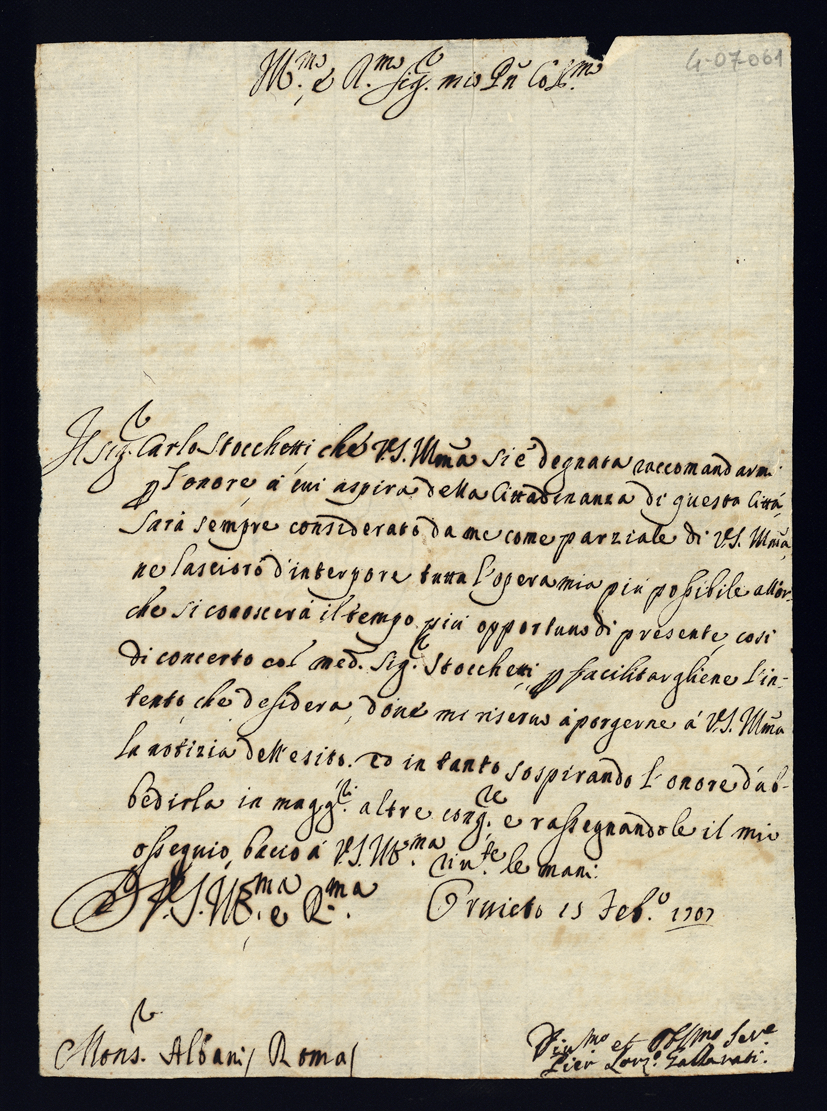 4-07-061
Ill.mo e R.mo Sig.r mio P.n Col.mo
Il Sig.r Carlo Stocchetti che V.S. Ill.ma si è degnata raccomandarmi
p l'onore à cui aspira della Cittadinanza di questa Città,
sarà sempre considerato da me come parziale di V.S. Ill.ma,
ne lascierò d'interporre tutta l'opera mia più possibile allor-
che si conoscerà il tempo più opportuno di presente, così
di concerto col med. Sig.r Stocchetti, p facilitargliene l'in-
tento che desidera, dove mi riservo à porgerne à V.S. Ill.ma
la notizia dell'esito. Ed in tanto sospirando l'onore d'ub-
bedirla in magg.ri altre cong.re e rassegnandole il mio
ossequio, bacio à V.S. Ill.ma riv.te le mani.
Di V.S. Ill.ma e R.ma Orvieto 15 Feb.o 1707
Mons.r Albani / Roma /
Div.mo et Obl.mo Ser.e
Pier Lor.o Gallarati.